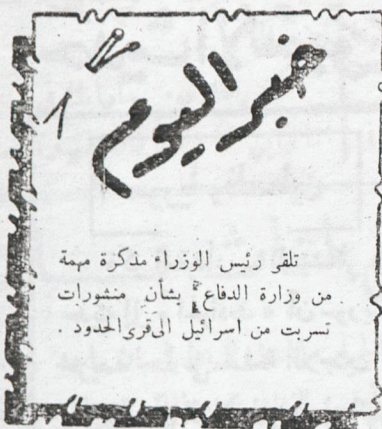 خبر اليوم
تلقى رئيس الوزراء مذكرة مهمة
من وزارة الدفاع بشأن منشورات
تسربت من اسرائيل الى قرى الحدود .